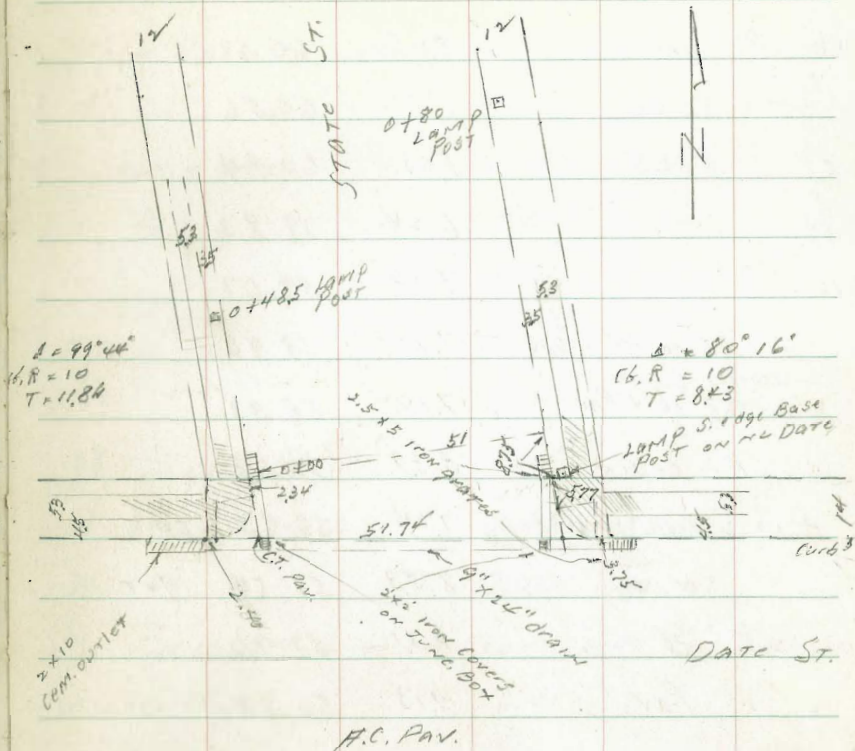 12
STATE ST.
12
0+80
LAMP
POST
N
53
35
0+48.5 LAMP
POST
53
35
Δ = 99° 44'
Cb. R = 10
T = 11.86
Δ = 80° 16'
Cb. R = 10
T = 8.43
2.5 x 5 iron grates
51
LAMP S. edge Base
POST ON NL Date
0+00
2.34
5.77
53
45
51.74
C.T. Pav.
Curb
2.40
3.75
9" x 24" drain
2x2' iron covers
on JUNC. BOX
2 x 10
Cem. outlet
DATE ST.
A.C. PAV.